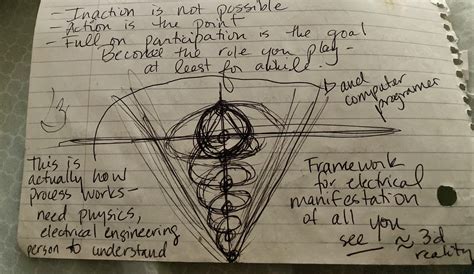 - Inaction is not possible
- Action is the point
- Full on participation is the goal
Become the role you play -
at least for awhile.
and
computer
programer
This is
actually how
process works -
need physics,
electrical engineering
person to understand
Framework
for electrical
manifestation
of all you
see ≈ 3d
reality